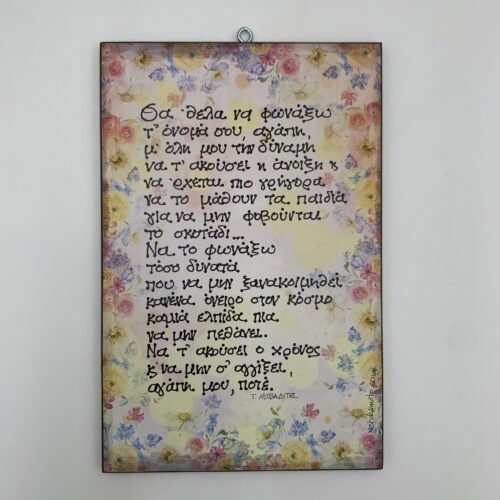 Θα 'θελα να φωνάξω
τ' όνομά σου, αγάπη,
μ' όλη μου την δύναμη
να τ' ακούσει η άνοιξη κ
να 'ρχεται πιο γρήγορα
να το μάθουν τα παιδιά
για να μην φοβούνται
το σκοτάδι...
Να το φωνάξω
τόσο δυνατά
που να μην ξανακοιμηθεί
κανένα όνειρο στον κόσμο
καμιά ελπίδα πια
να μην πεθάνει.
Να τ' ακούσει ο χρόνος
κ' να μην σ' αγγίξει,
αγάπη μου, ποτέ.
Τ. ΛΕΙΒΑΔΙΤΗΣ